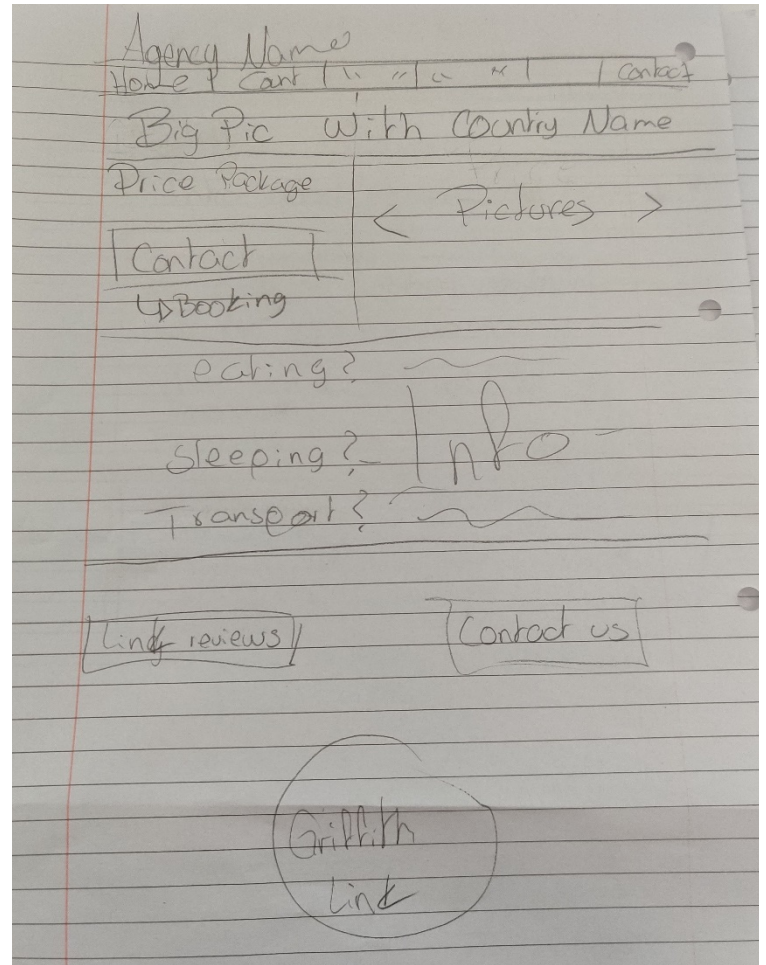 Agency Name
Home | Cant | " " | " " | | Contact
Big Pic With Country Name
Price Package
< Pictures >
Contact
↳ Booking
eating?
Sleeping? Info
Transport?
Link reviews
Contact us
Griffith
Link